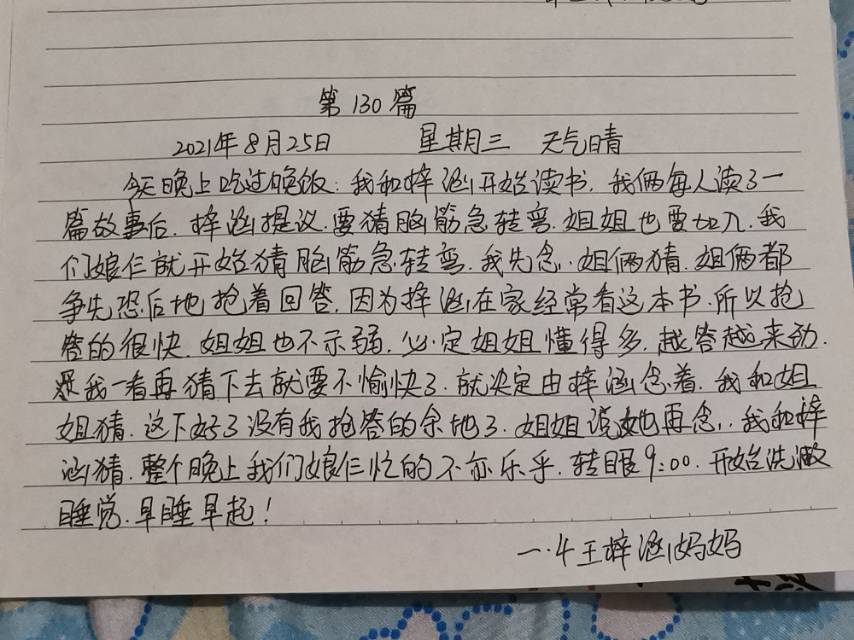 第130篇
2021年8月25日 星期三 天气晴
今天晚上吃过晚饭.我和梓涵开始读书.我俩每人读了一
篇故事后.梓涵提议.要猜脑筋急转弯.姐姐也要加入.我
们娘仨就开始猜脑筋急转弯.我先念.姐俩猜.姐俩都
争先恐后地抢着回答.因为梓涵在家经常看这本书.所以抢
答的很快.姐姐也不示弱.必定姐姐懂得多.越答越来劲.
我一看再猜下去就要不愉快了.就决定由梓涵念着.我和姐
姐猜.这下好了没有我抢答的余地了.姐姐说她再念.我和梓
涵猜.整个晚上我们娘仨忙的不亦乐乎.转眼9:00.开始洗漱
睡觉.早睡早起!
一.4王梓涵妈妈